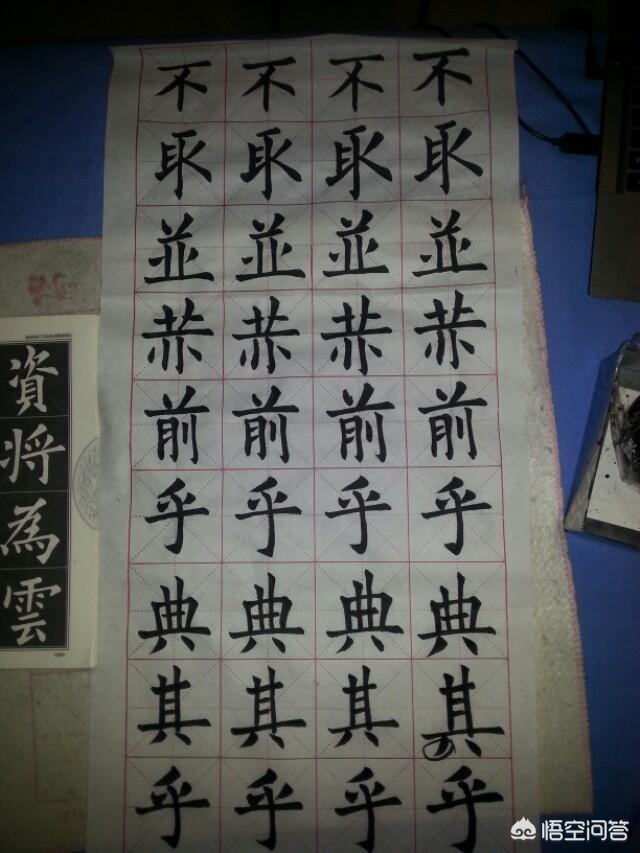 不不不不
取取取取
並並並並
前前前前
乎乎乎乎
典典典典
其其其其
乎乎乎乎
資将為雲
悟空问答